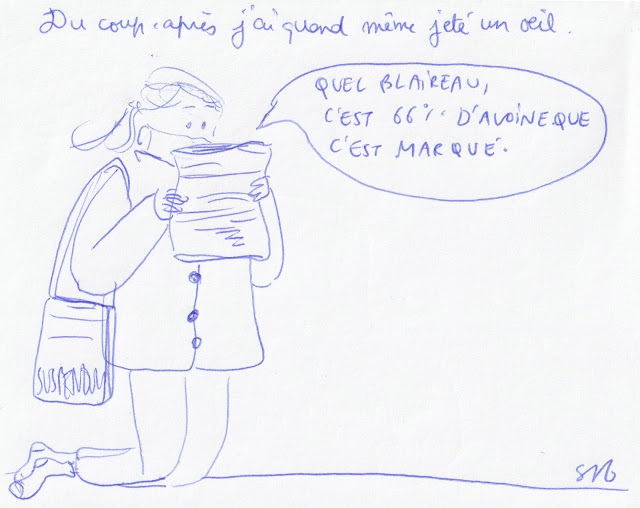 Du coup après j'ai quand même jeté un oeil.
QUEL BLAIREAU,
C'EST 66% D'AVOINE QUE
C'EST MARQUÉ.
SUSPENDU